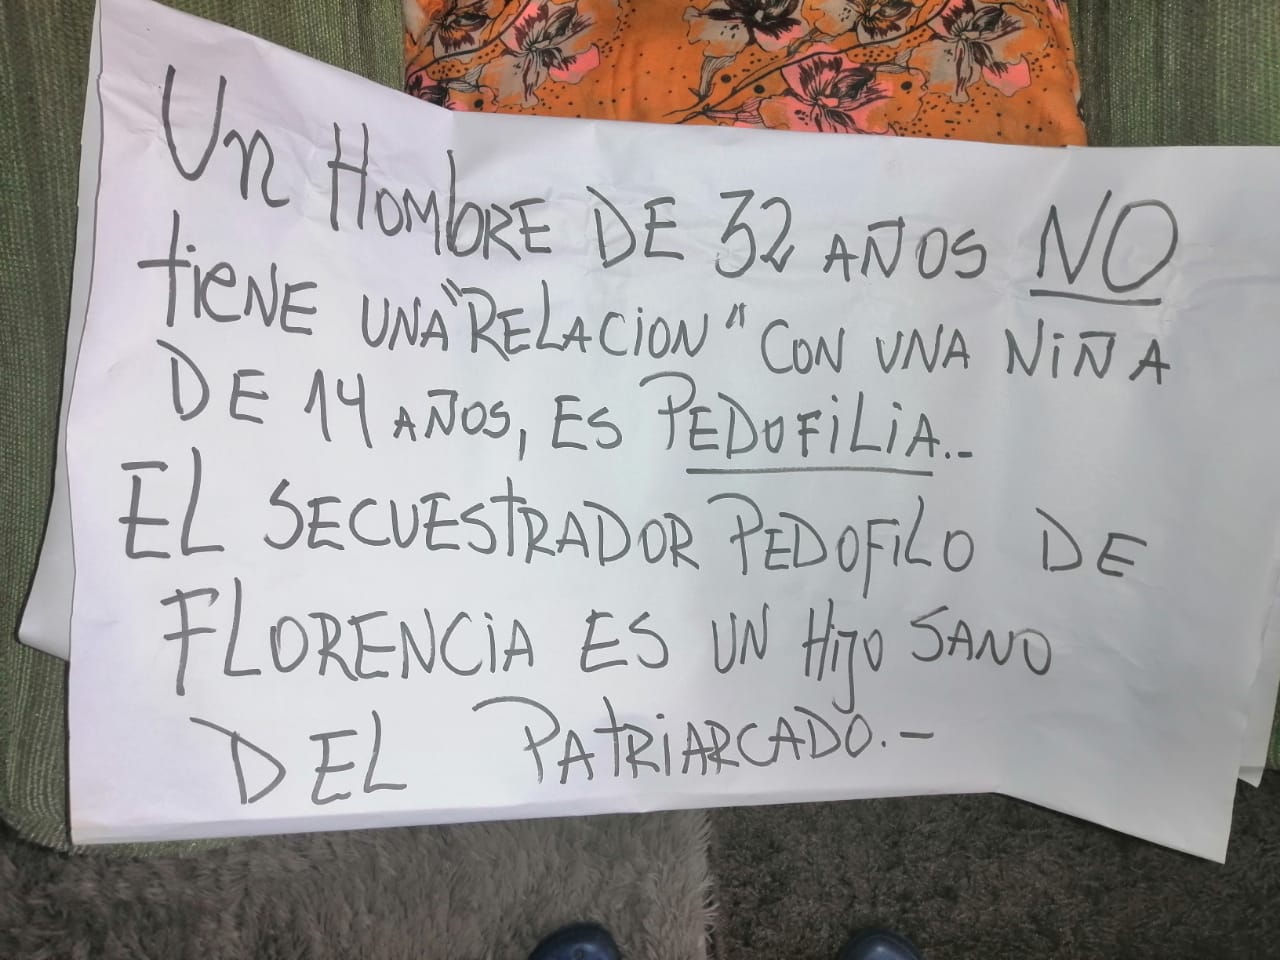 Un HOMBRE DE 32 AÑOS NO
tiene UNA "RELACION" CON UNA NIÑA
DE 14 AÑOS, ES PEDOFILIA.-
EL SECUESTRADOR PEDOFILO DE
FLORENCIA ES UN HIJO SANO
DEL PATRIARCADO.-